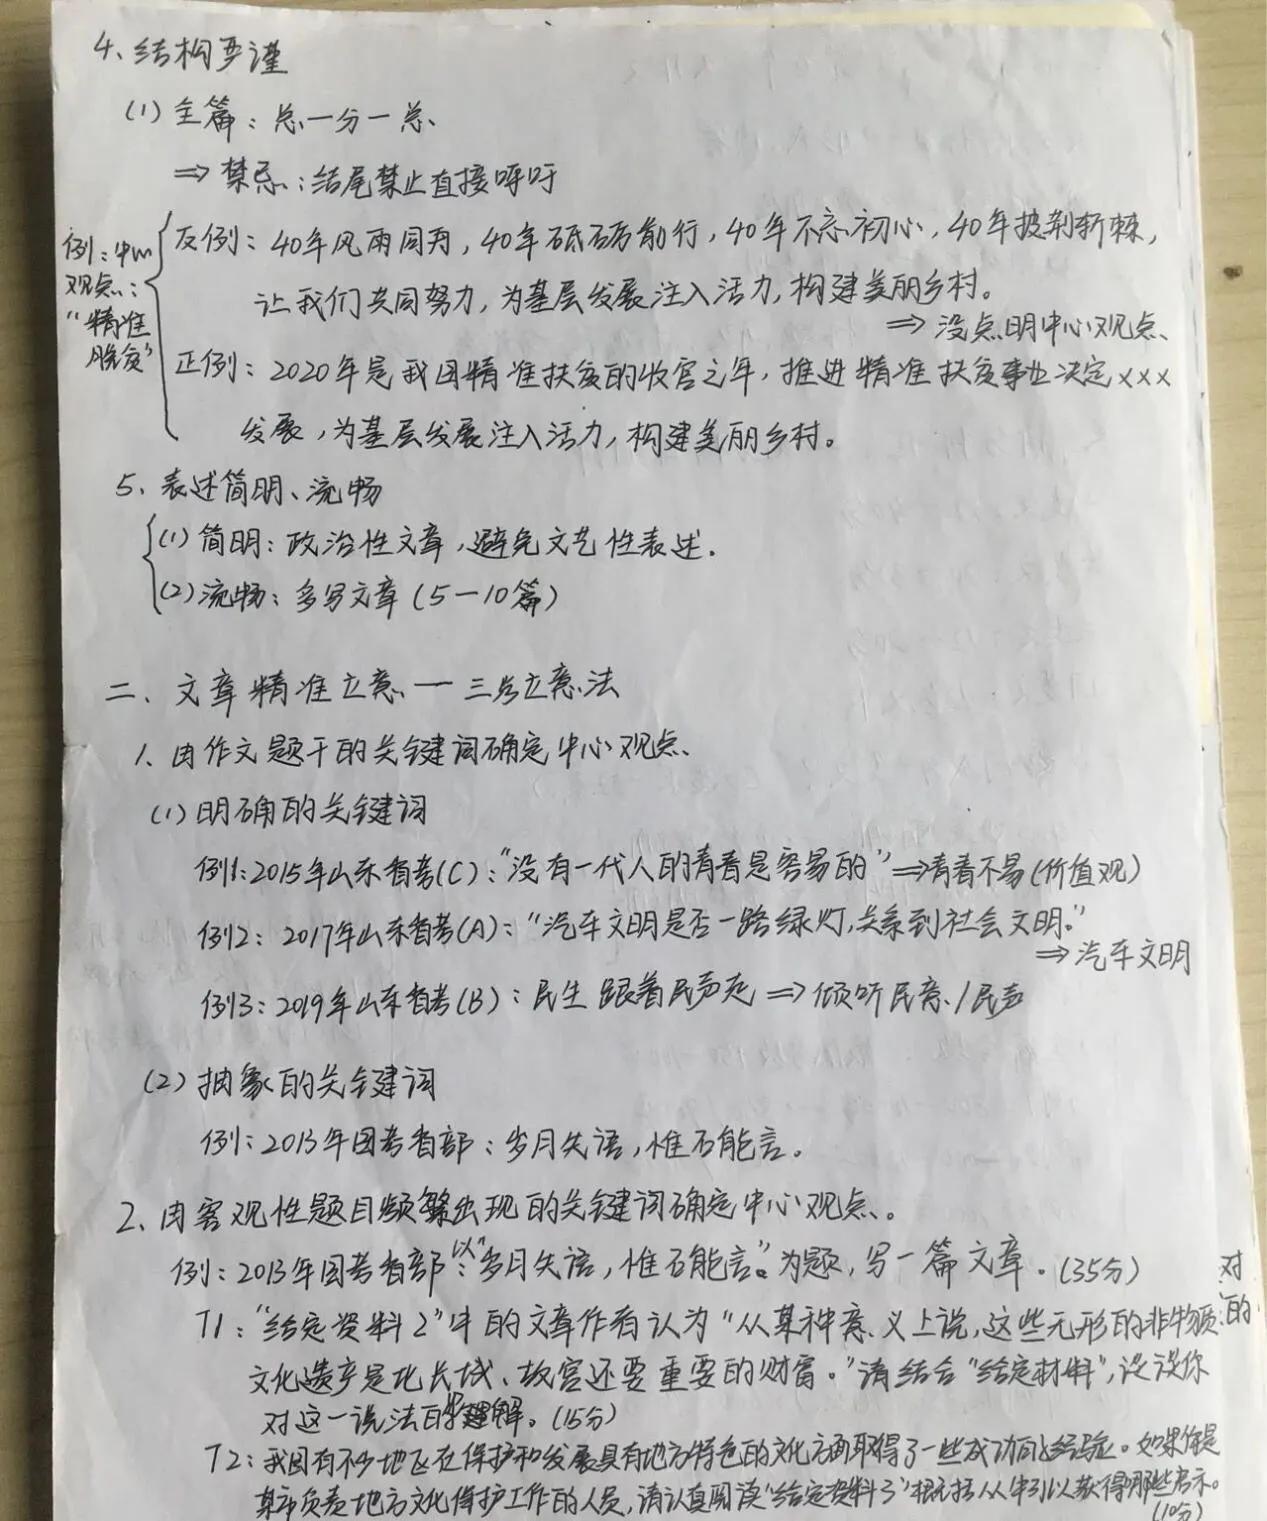 4、结构严谨
(1) 全篇：总一分一总、
⇒ 禁忌：结尾禁止直接呼吁
例：中心
观点：
"精准
脱贫"
反例：40年风雨同舟，40年砥砺前行，40年不忘初心，40年披荆斩棘，
让我们共同努力，为基层发展注入活力，构建美丽乡村。
⇒ 没点明中心观点、
正例：2020年是我国精准扶贫的收官之年，推进精准扶贫事业决定×××
发展，为基层发展注入活力，构建美丽乡村。
5、表述简明、流畅
(1) 简明：政治性文章，避免文艺性表述.
(2) 流畅：多写文章 (5一10篇)
二、文章精准立意 — 三步立意法
1、由作文题干的关键词确定中心观点、
(1) 明确的关键词
例1：2015年山东省考(C)："没有一代人的青春是容易的" ⇒青春不易(价值观)
例2：2017年山东省考(A)："汽车文明是否一路绿灯,关系到社会文明."
⇒ 汽车文明
例3：2019年山东省考(B)：民生跟着民声走 ⇒ 倾听民意/民声
(2) 抽象的关键词
例：2013年国考省部：岁月失语，惟石能言。
2、由客观性题目频繁出现的关键词确定中心观点。
例：2013年国考省部：以"岁月失语，惟石能言。"为题，写一篇文章。(35分)
对
T1："给定资料2"中的文章作者认为"从某种意义上说，这些无形的非物质的
文化遗产是比长城、故宫还要重要的财富。"请结合"给定材料"，谈谈你
对这一说法的理解。(15分)
T2：我国有不少地区在保护和发展具有地方特色的文化方面取得了一些成功的经验。如果你是
某市负责地方文化保护工作的人员，请认真阅读"给定资料3"概括从中可以获得哪些启示。
(10分)